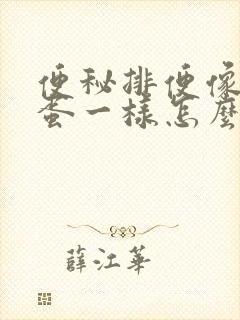 便秘排便像
蛋一样怎麼
薛江華